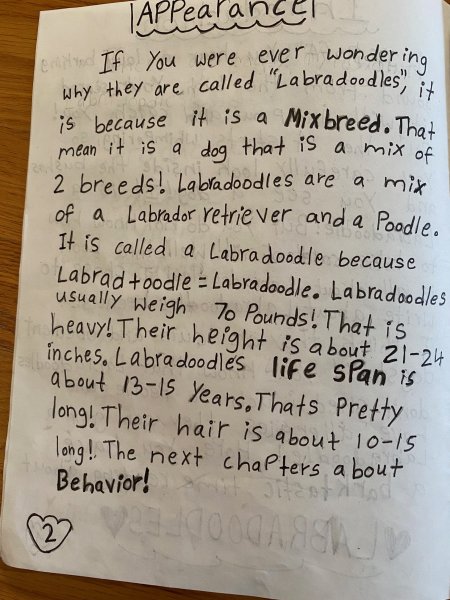 APPearance
If You were ever wondering
why they are called "Labradoodles", it
is because it is a Mixbreed. That
mean it is a dog that is a mix of
2 breeds! Labradoodles are a mix
of a Labrador retriever and a Poodle.
It is called a Labradoodle because
Labrad + oodle = Labradoodle. Labradoodles
usually weigh 70 Pounds! That is
heavy! Their height is about 21-24
inches. Labradoodles life span is
about 13-15 Years. Thats Pretty
long! Their hair is about 10-15
long! The next chapters about
Behavior!
2
LABRADOODLES